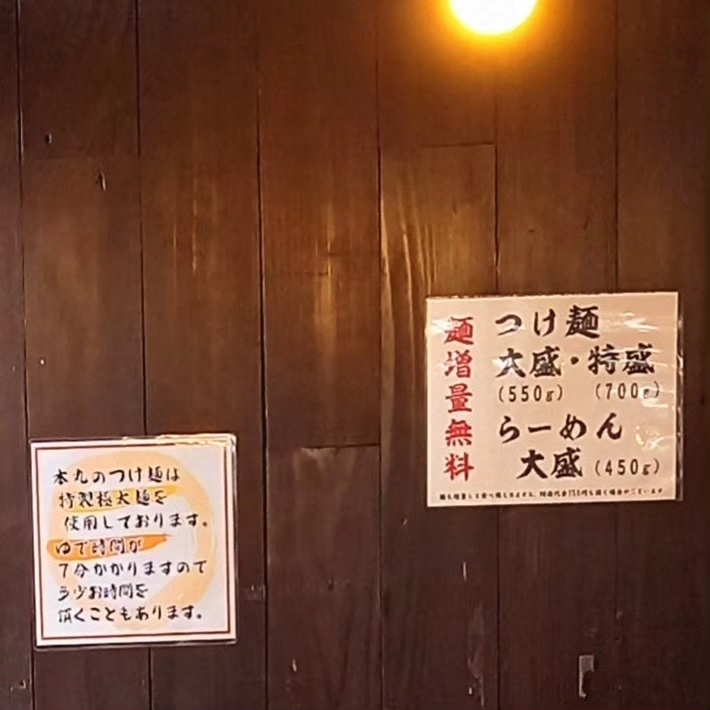 本丸のつけ麺は
特製極太麺を
使用しております。
ゆで時間が
7分かかりますので
多少お時間を
頂くこともあります。
麺増量無料
つけ麺
大盛・特盛
(550g) (700g)
らーめん
大盛(450g)